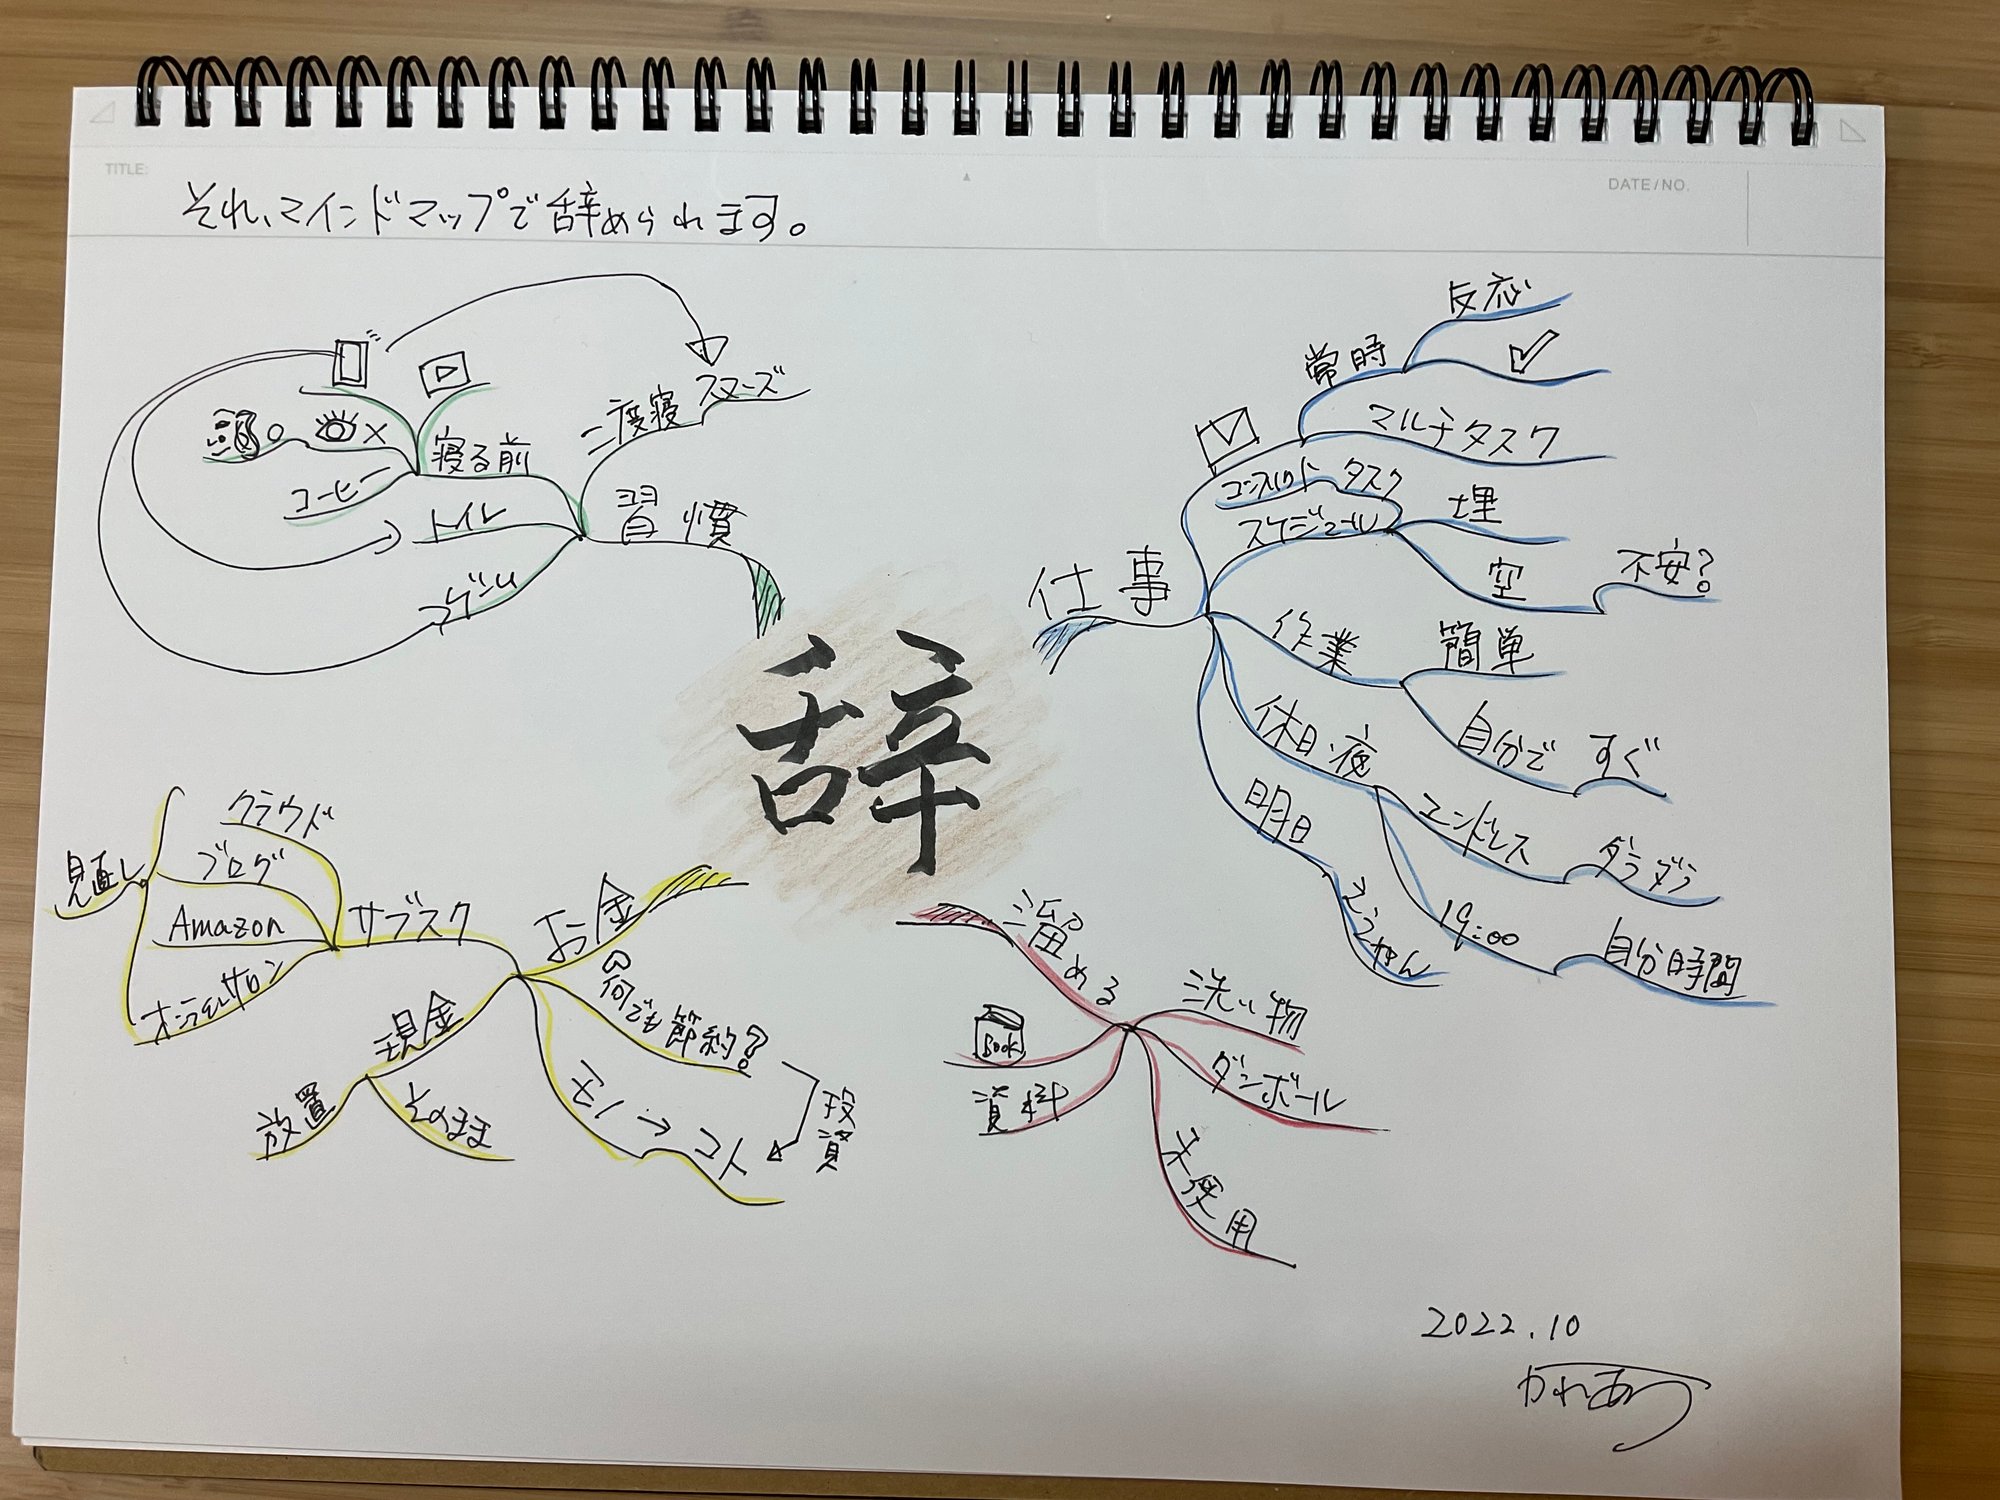 TITLE:
DATE/NO.
それ、マインドマップで辞められます。
辞
習慣
二度寝
スヌーズ
寝る前
頭○
×
コーヒー
トイレ
マンガ
仕事
常時
反応
マルチタスク
コンスタント
タスク
スケジュール
埋
空
不安?
作業
簡単
自分で
すぐ
休日・夜
エンドレス
ダラダラ
19:00
自分時間
明日
お金
サブスク
クラウド
ブログ
Amazon
オンラインサロン
見直し
現金
放置
そのまま
何でも節約?
モノ→コト
投資
溜める
洗い物
ダンボール
未使用
資料
Book
2022.10